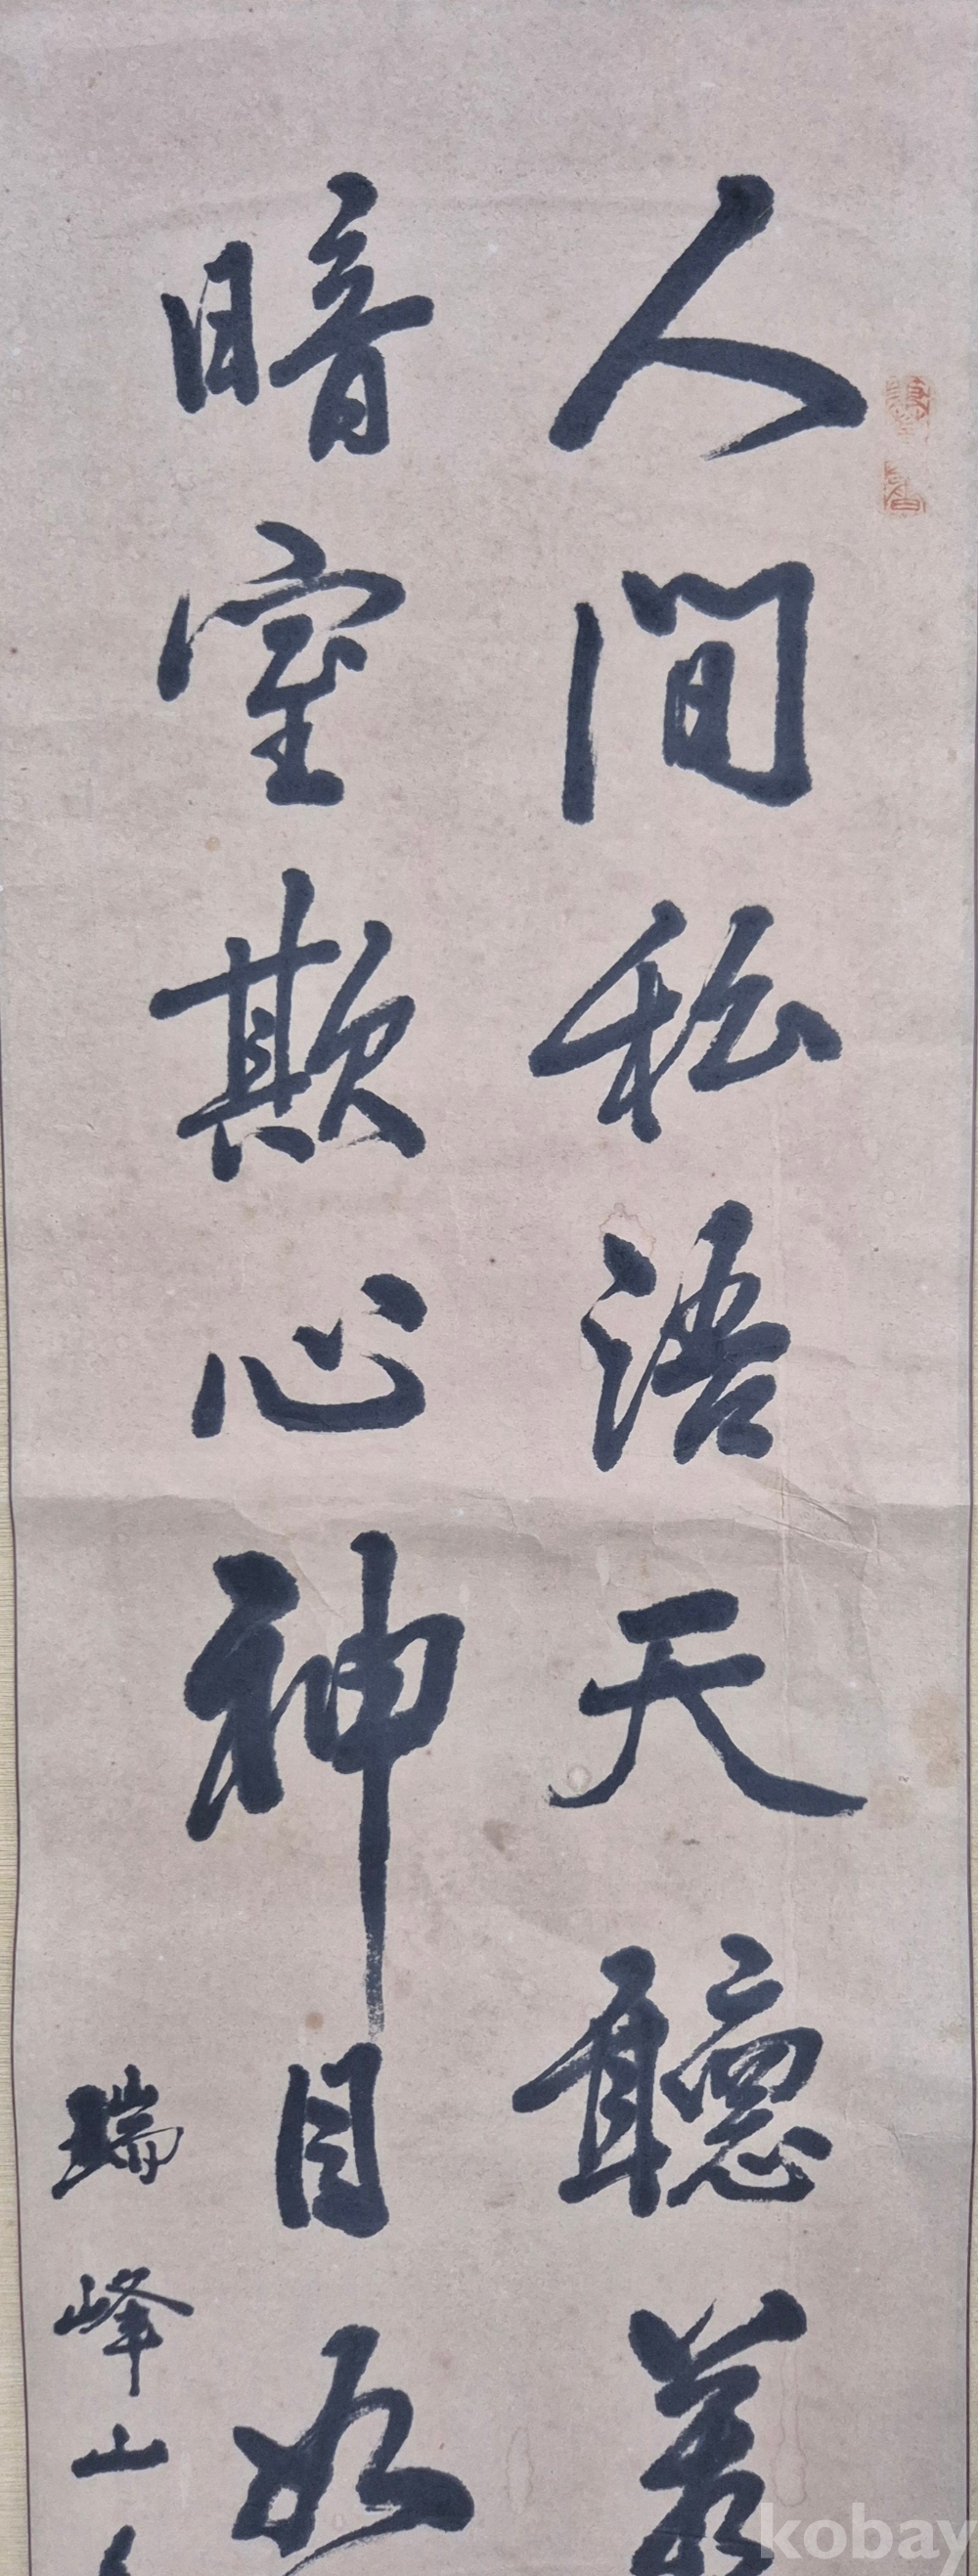 人間私語天聽若
暗室欺心神目如
瑞峰山人
kobay